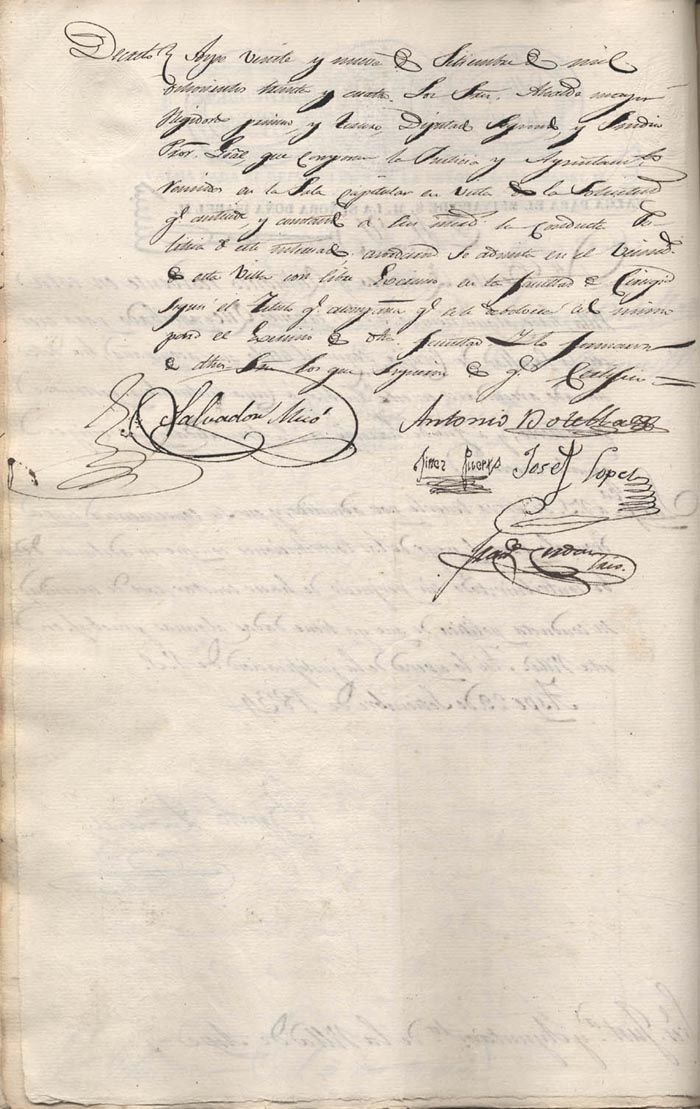 Decreto Aspe veinte y nueve de Setiembre de mil
ochocientos treinta y cuatro Los Sres. Alcalde mayor
Regidores primero, y tercero, Diputad. y Sindico
Pror. Gral que componen la Justicia y Ayuntam.to
reunidos en la Sala capitular en vista de la Solicitud
q.e antecede, y constando a sus mrds la conducta Po-
litica de este interesad. acordaron se admita en el Vecind.
de esta Villa con libre Exercicio en la facultad de Cirugia
segun el Titulo q.e acompaña q.e se le debolvera al mismo
para el Exercicio de dha facultad Y lo firmaron
de dhos Sres los que supieron de q.e Certifico =
Salvador Micó
Antonio Botella
Gines Josef Lopez
Cerdan